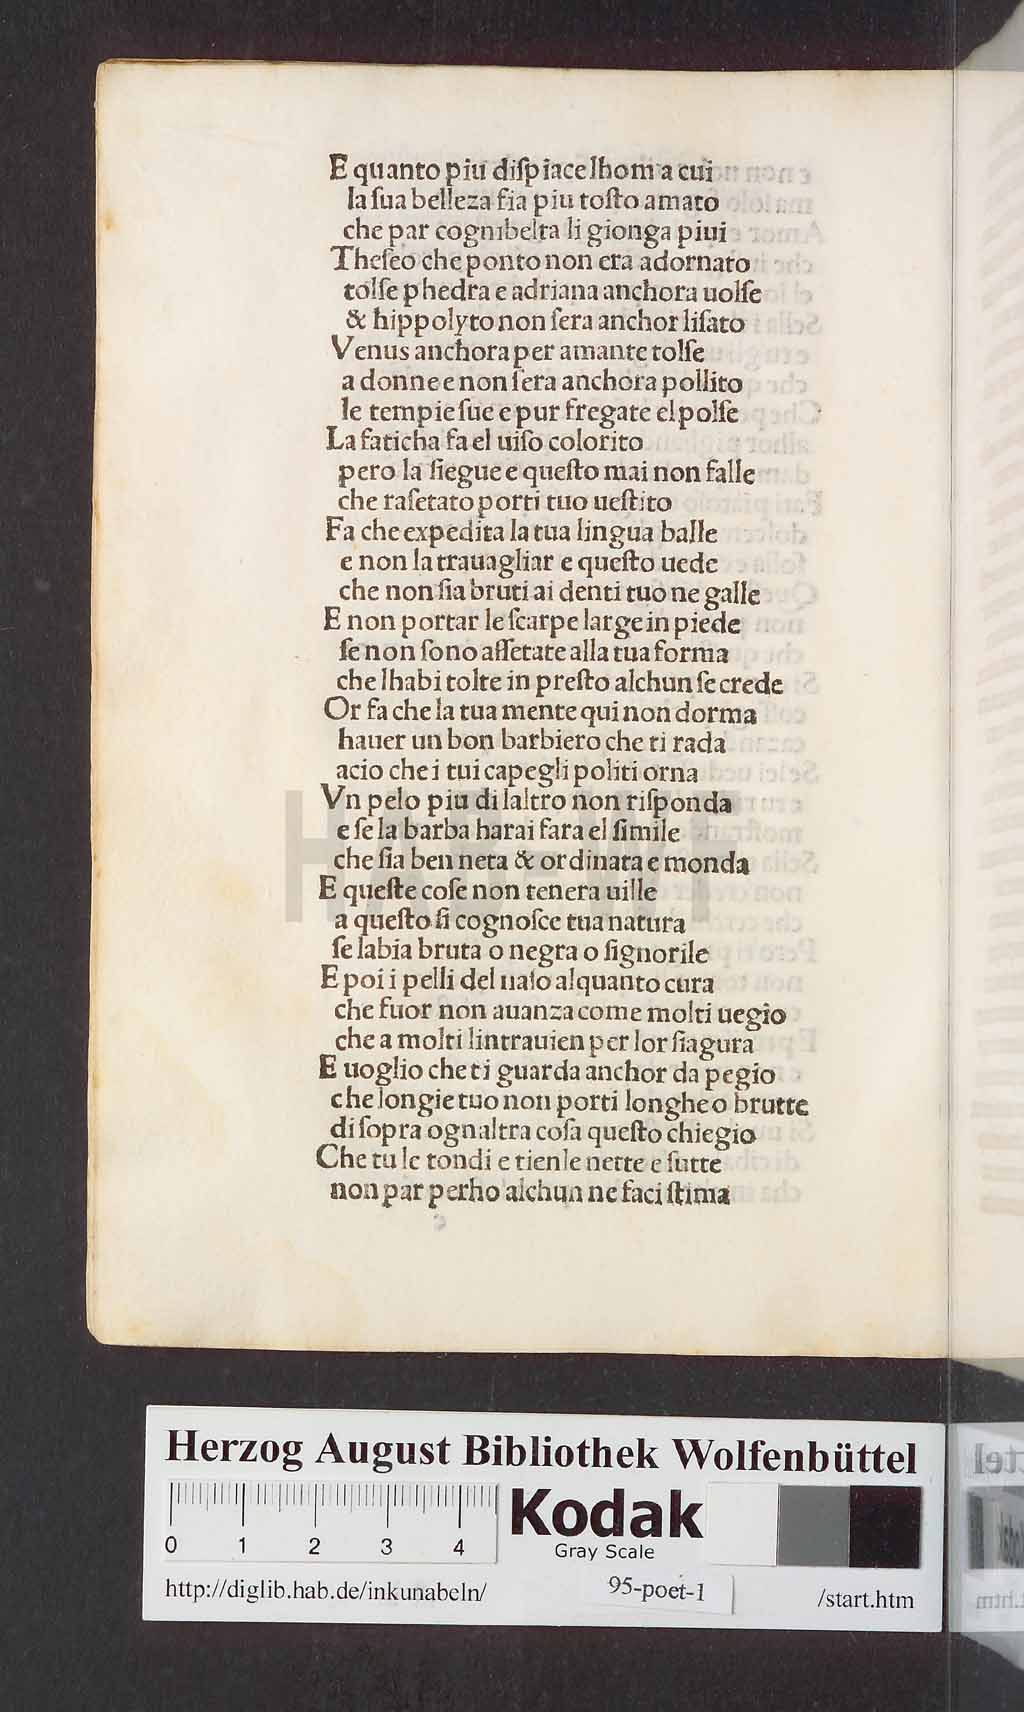 E quanto piu diſpiace lhom a cui
la ſua belleza ſia piu toſto amato
che par cognibelta li gionga piui
Theſeo che ponto non era adornato
tolſe phedra e adriana anchora uolſe
& hippolyto non ſera anchor liſato
Venus anchora per amante tolſe
a donne e non ſera anchora pollito
le tempie ſue e pur fregate el polſe
La faticha fa el uiſo colorito
pero la ſiegue e queſto mai non falle
che raſetato porti tuo ueſtito
Fa che expedita la tua lingua balle
e non la trauagliar e queſto uede
che non ſia bruti ai denti tuo ne galle
E non portar le ſcarpe large in piede
ſe non ſono aſſetate alla tua forma
che lhabi tolte in preſto alchun ſe crede
Or fa che la tua mente qui non dorma
hauer un bon barbiero che ti rada
acio che i tui capegli politi orna
Vn pelo piu di laltro non riſponda
e ſe la barba harai fara el ſimile
che ſia ben neta & ordinata e monda
E queſte coſe non tenera uille
a queſto ſi cognoſce tua natura
ſe labia bruta o negra o ſignorile
E poi i pelli del naſo alquanto cura
che fuor non auanza come molti uegio
che a molti lintrauien per lor ſiagura
E uoglio che ti guarda anchor da pegio
che longie tuo non porti longhe o brutte
di ſopra ognaltra coſa queſto chiegio
Che tu le tondi e tienle nette e ſutte
non par perho alchun ne faci ſtima
HAB-WF
Herzog August Bibliothek Wolfenbüttel
0 1 2 3 4
Kodak
Gray Scale
http://diglib.hab.de/inkunabeln/ 95-poet-1 /start.htm